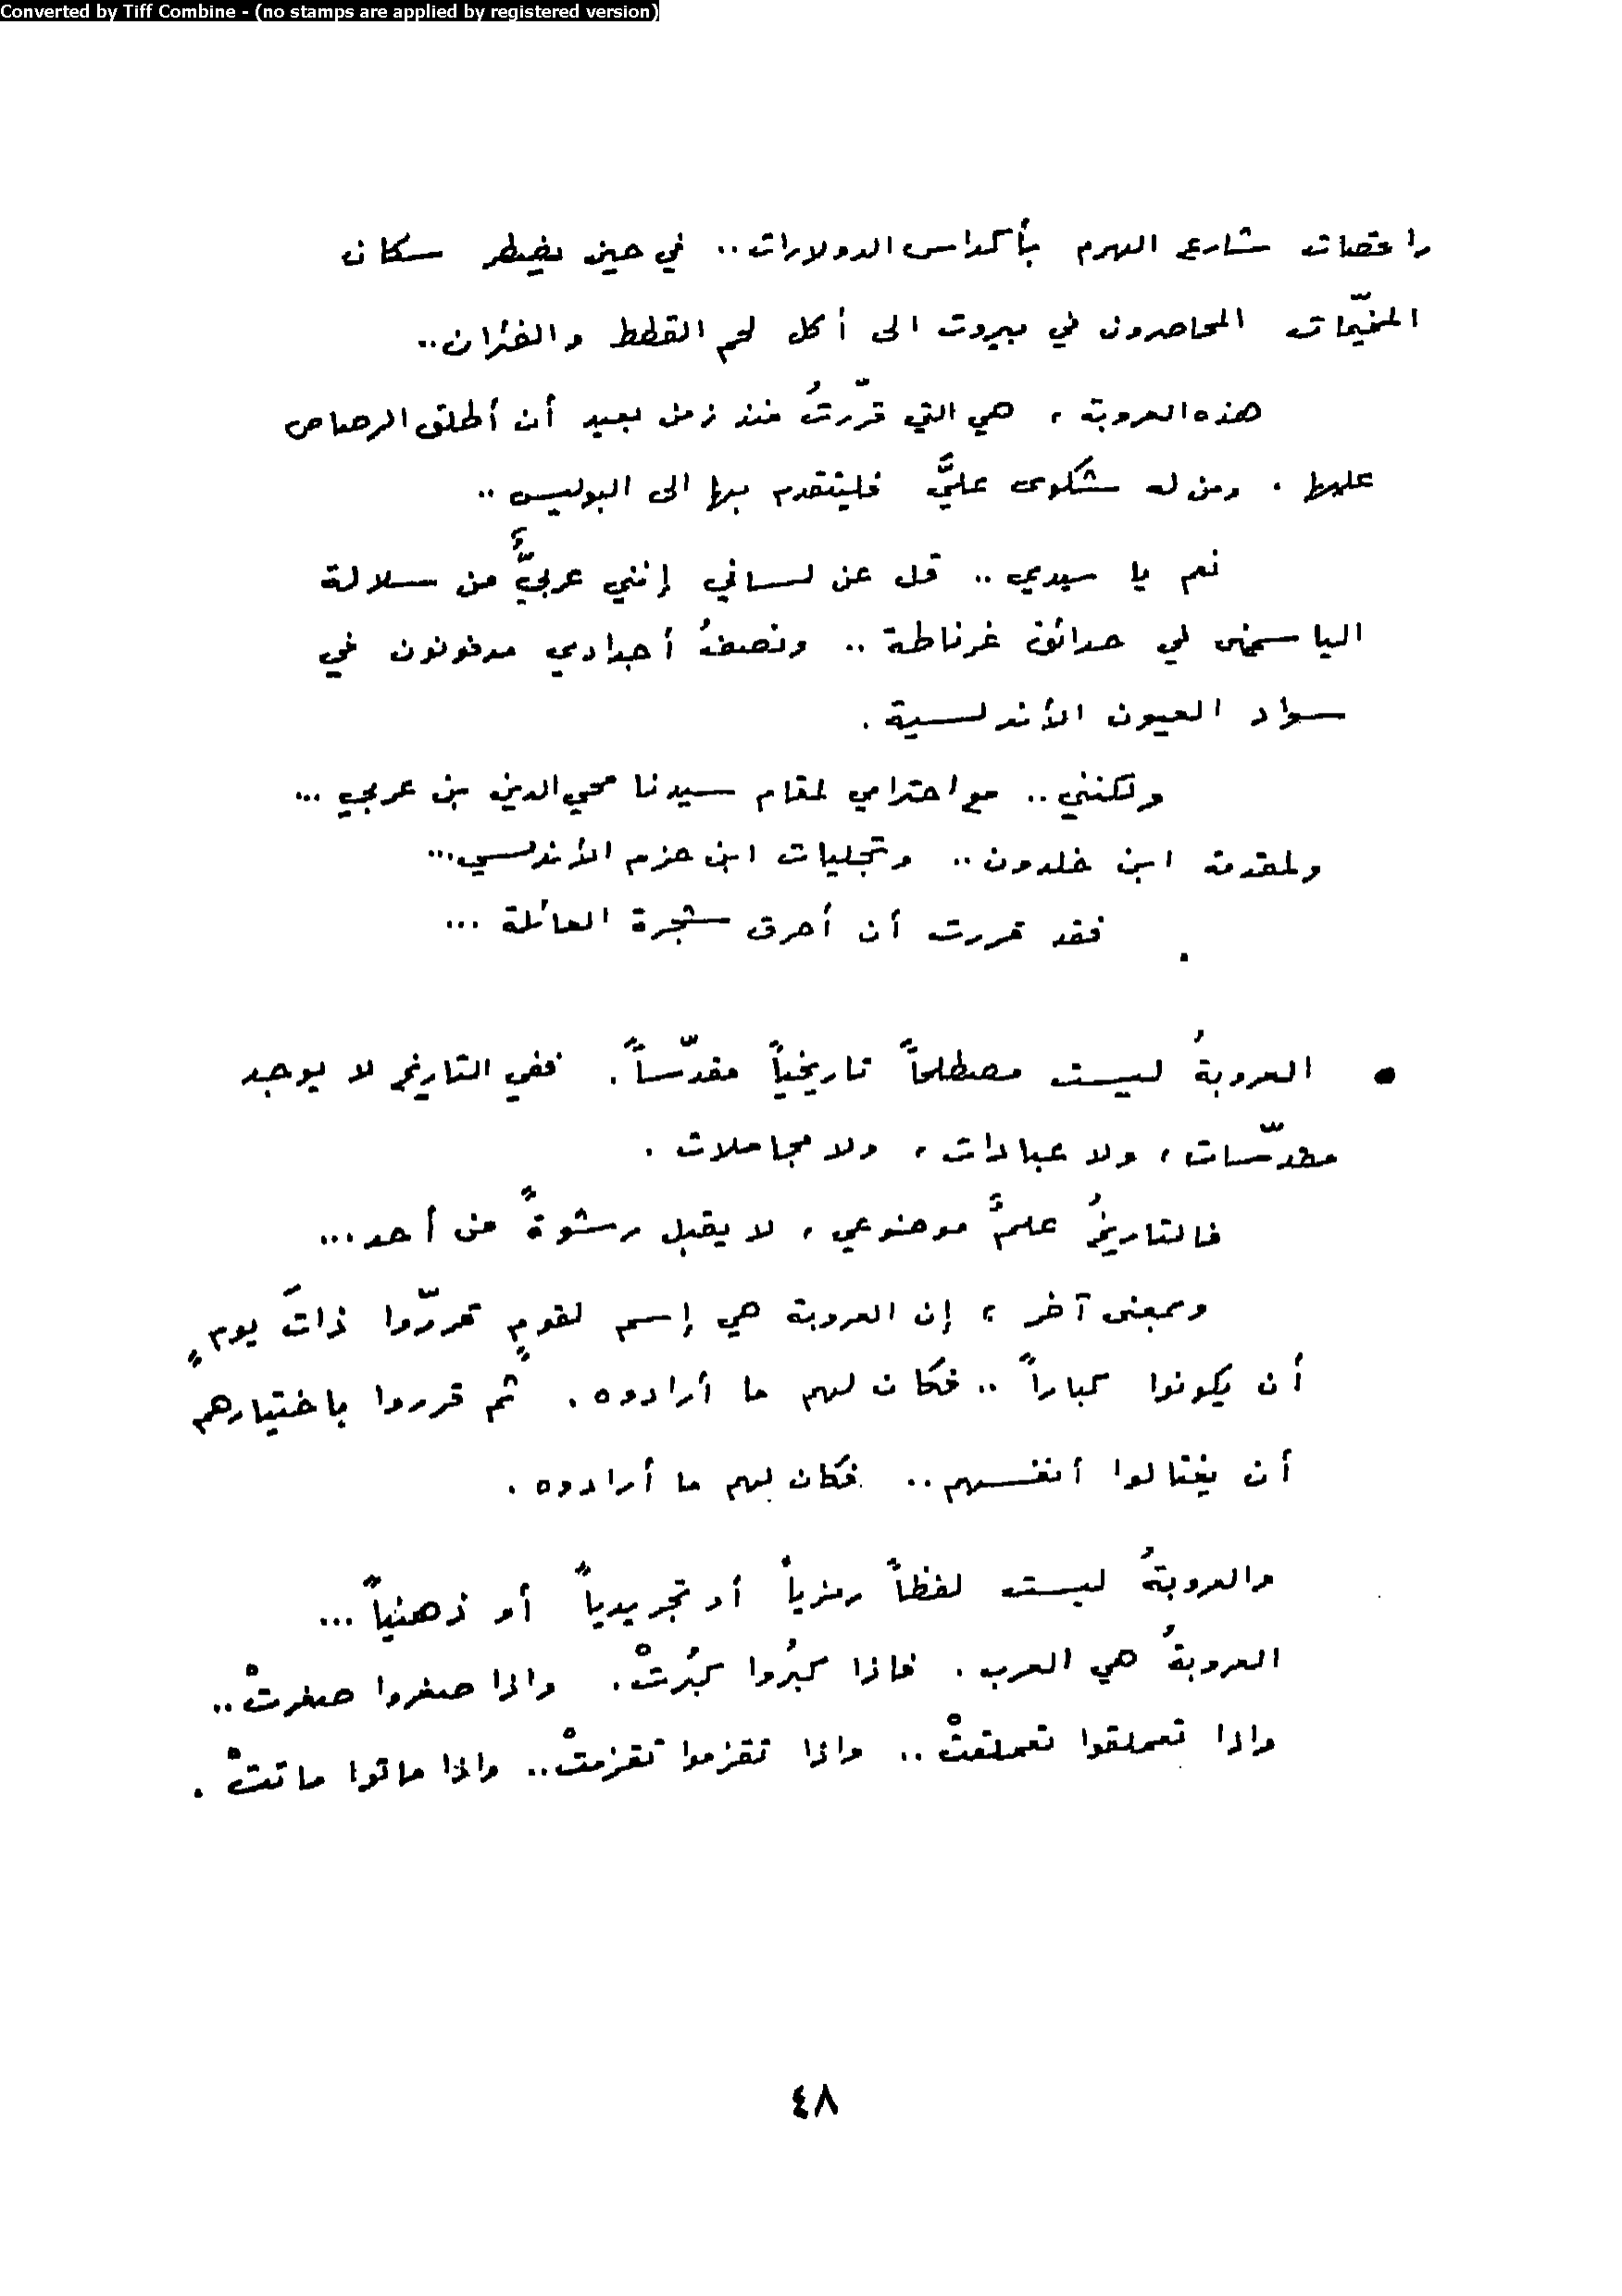 Converted by Tiff Combine - (no stamps are applied by registered version)
راقصات شارع الهرم بأكداس الدولارات.. في حين يضطر سكان
المخيّمات المحاصرون في بيروت الى أكل لحم القطط والفئران..
هذه العروبة ، هي التي قرّرتُ منذ زمن بعيد أن أطلق الرصاص
عليها . ومن له شكوى عليَّ فليتقدم بها الى البوليس ..
نعم يا سيدي .. قل عن لساني إنني عربيٌّ من سلالة
الياسمين في حدائق غرناطة .. ونصفُ أجدادي مدفونون في
سواد العيون الأندلسية .
ولكنني .. مع احترامي لمقام سيدنا محي الدين بن عربي ...
ولمقدمة ابن خلدون .. وتجليات ابن حزم الأندلسي...
فقد قررت أن أحرق شجرة العائلة ...
• العروبةُ ليست مصطلحاً تاريخياً مقدّساً. ففي التاريخ لا يوجد
مقدّسات ، ولا عبادات ، ولا مجاملات .
فالتاريخُ علمٌ موضوعي ، لا يقبل رشوةً من أحد...
وبمعنى آخر ، إن العروبة هي إسم لقومٍ قررّوا ذاتَ يومٍ
أن يكونوا كباراً .. فكان لهم ما أرادوه . ثم قرروا باختيارهم
أن يغتالوا أنفسهم .. فكان لهم ما أرادوه .
والعروبةُ ليست لفظاً رمزياً أو تجريدياً أو ذهنياً ...
العروبةُ هي العرب . فاذا كبُروا كبُرتْ . واذا صغروا صغرتْ ..
واذا تعملقوا تعملقتْ .. واذا تقزموا تقزمتْ .. واذا ماتوا ماتتْ .
٤٨